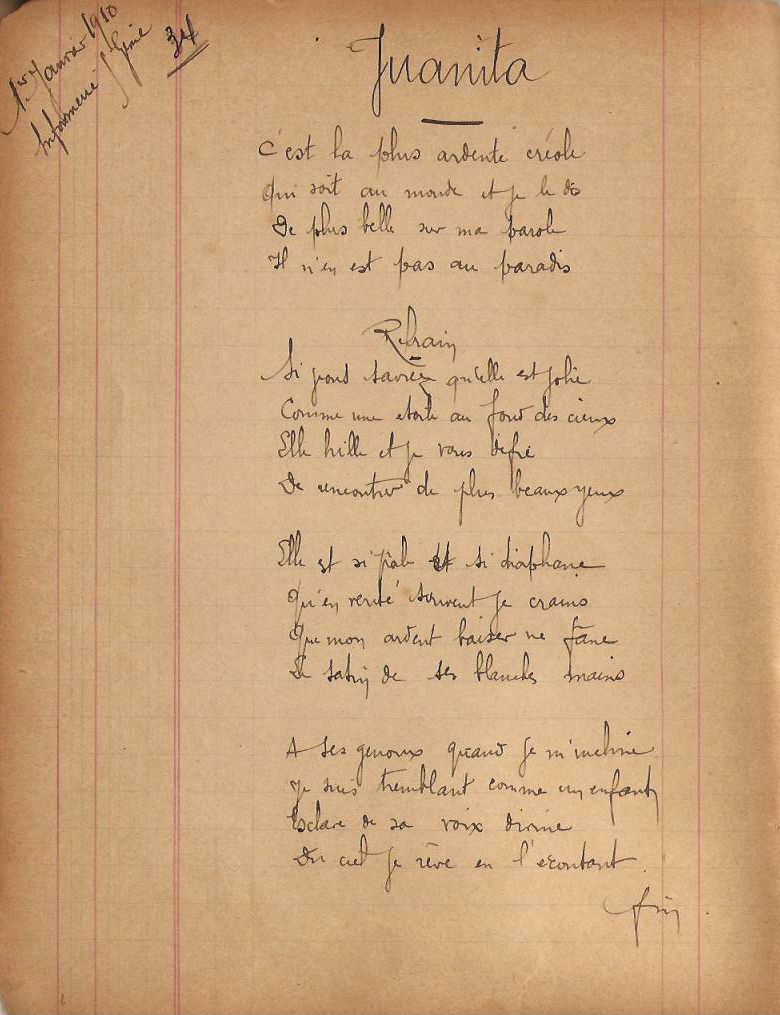 1er Janvier 1910
Infirmerie / Génie
34
Juanita
C'est la plus ardente créole
Qui soit au monde et je le dis
De plus belle sur ma parole
Il n'en est pas au paradis
Refrain
Si vous saviez qu'elle est jolie
Comme une etoile au fond des cieux
Elle brille et je vous défie
De rencontrer de plus beaux yeux
Elle est si pâle et si diaphane
Qu'en verité souvent je crains
Que mon ardent baiser ne fane
Le satin de ses blanches mains
A ses genoux quand je m'incline
Je suis tremblant comme un enfant
Esclave de sa voix divine
Du ciel je rêve en l'ecoutant.
fin